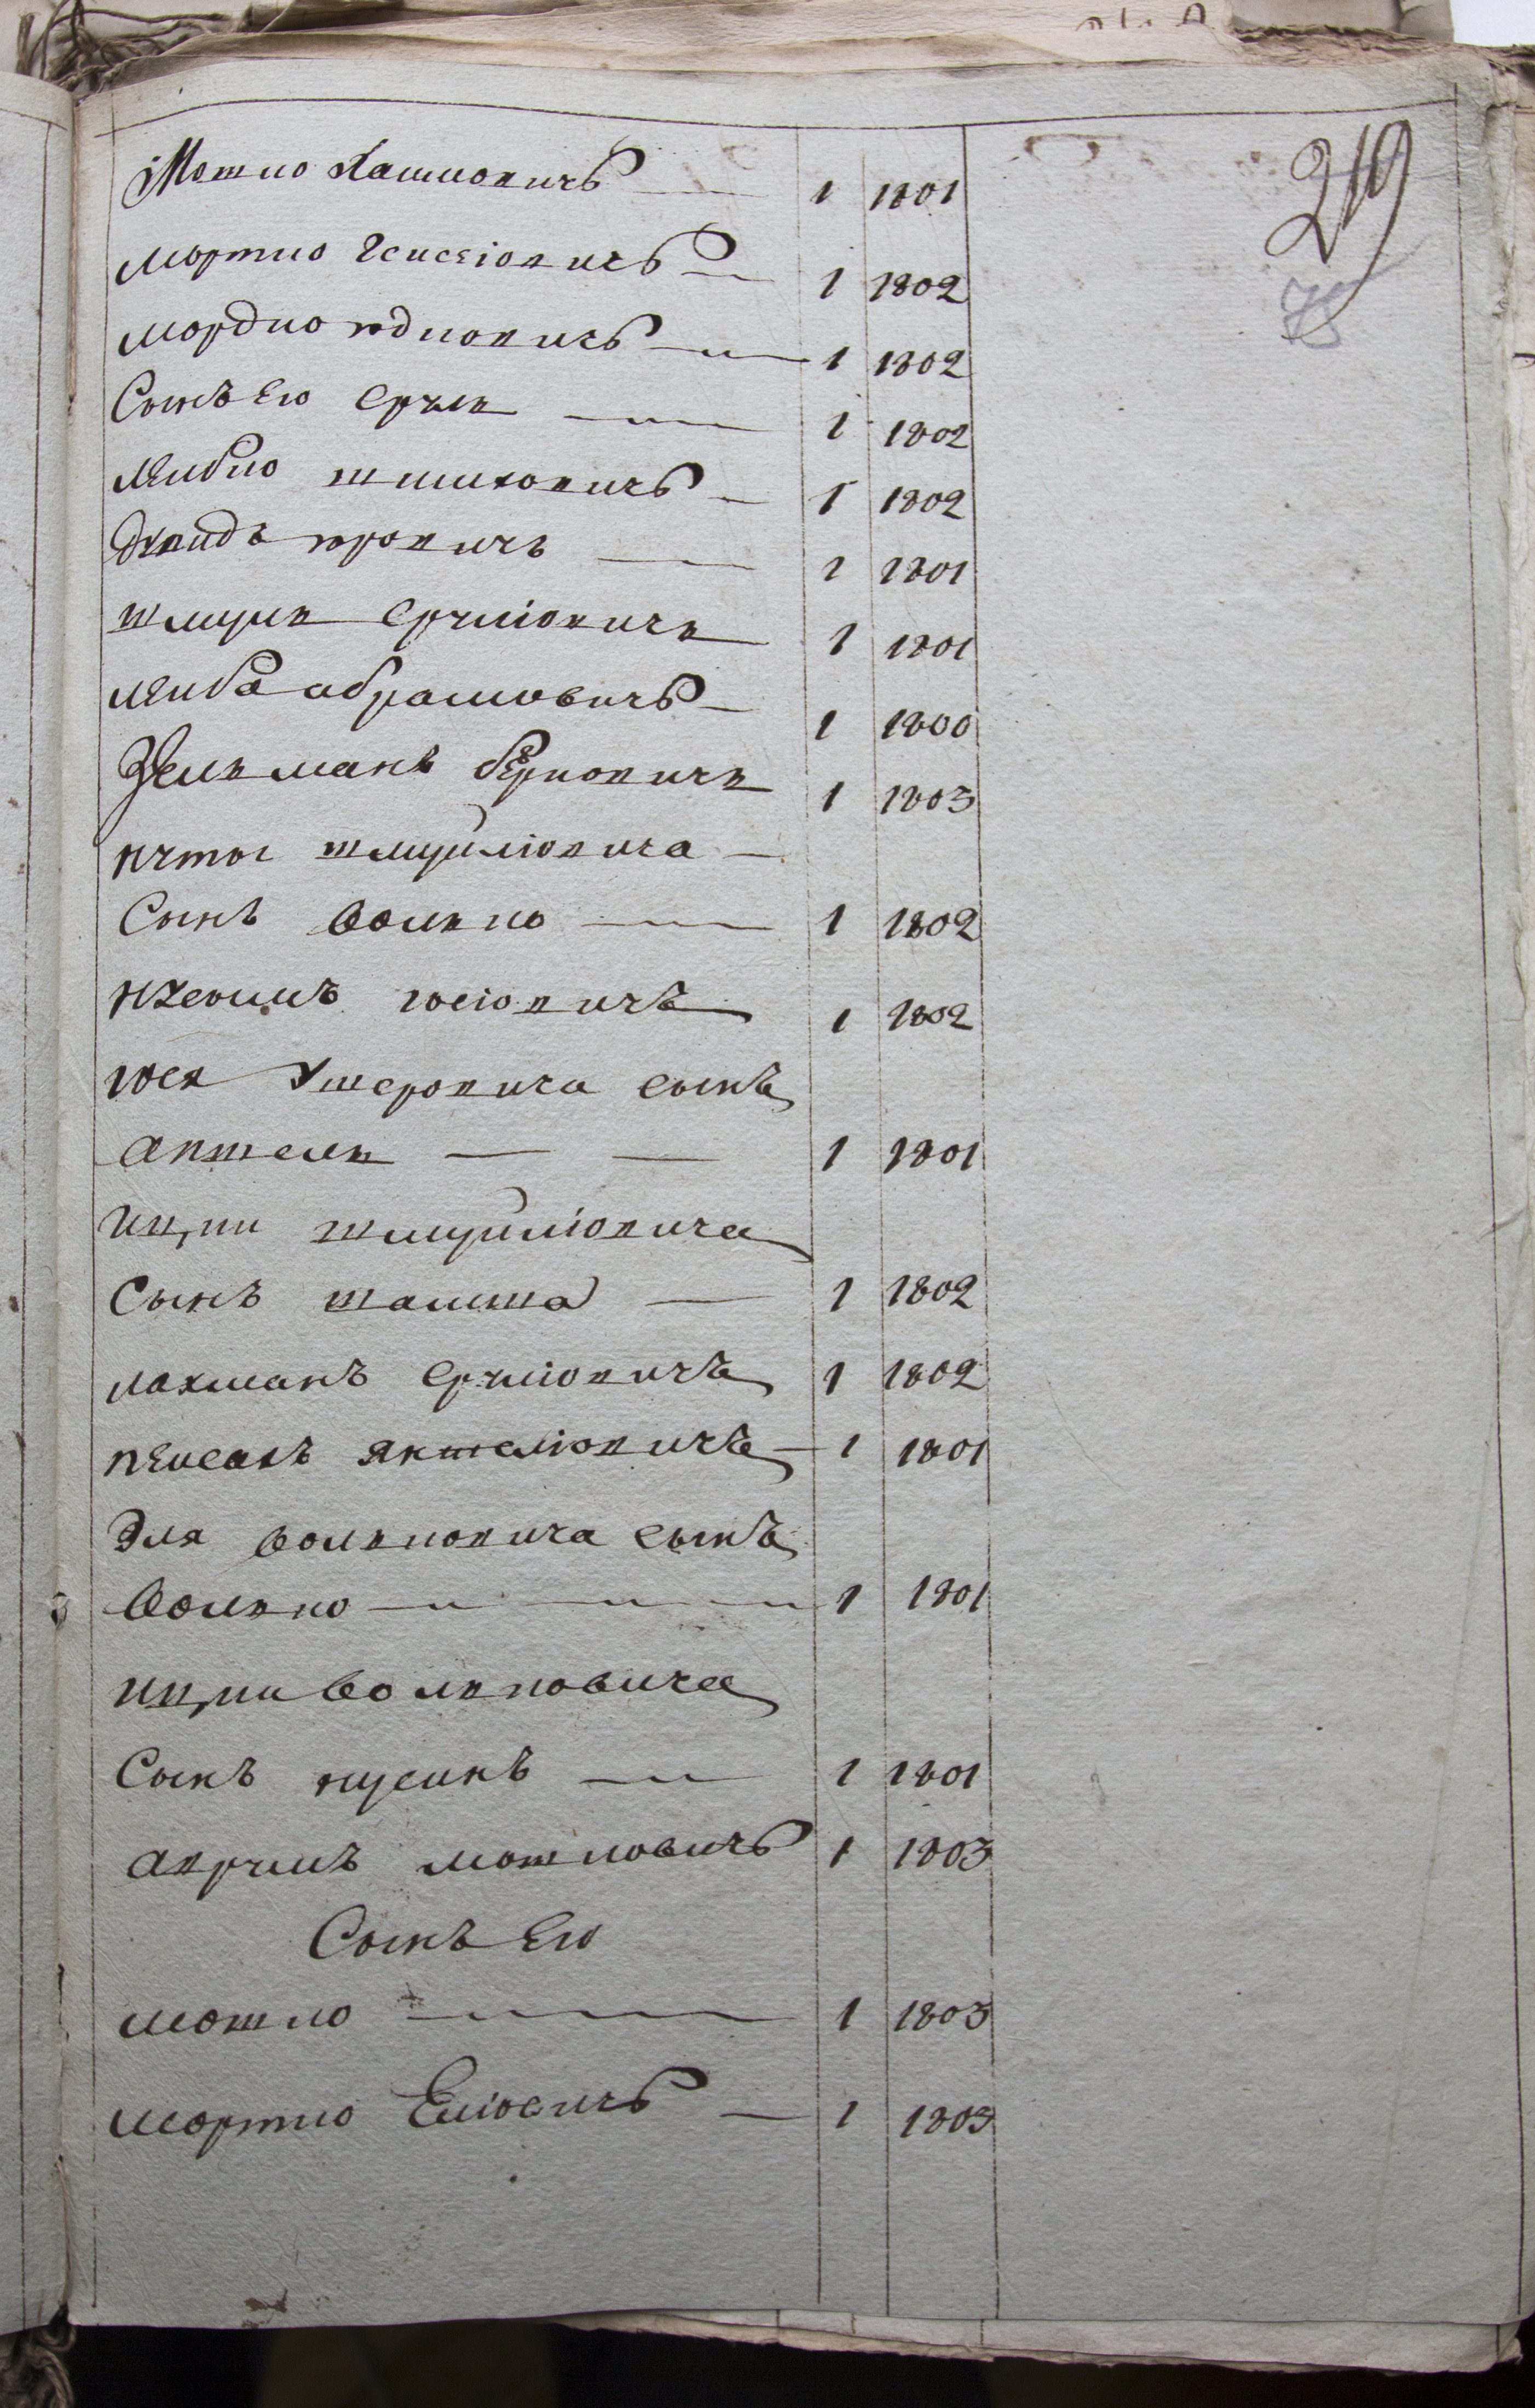 219
75
Мошко Хашковичъ 1 1801
мортко 1 1802
мордко юдковичъ 1 1802
Сынъ Его Срулъ 1 1802
лейбко 1 1802
давидъ юровичъ 1 1801
шмуль Сруліовичъ 1 1801
лейба абрамовичъ 1 1800
Зелманъ берковичъ 1 1803
шмуйліовича
Сынъ волько 1 1802
юсіовичъ 1 1802
юся Ушеровича сынъ
аншель 1 1801
ицки шмуйліовича
Сынъ 1 1802
лахманъ Сруліовичъ 1 1802
пейсахъ янкеліовичъ 1 1801
Эля вольковича сынъ
волько 1 1801
ицки вольковича
Сынъ нусинъ 1 1801
аврумъ мошковичъ 1 1803
Сынъ Его
мошко 1 1803
мортко Еліовичъ 1 1803